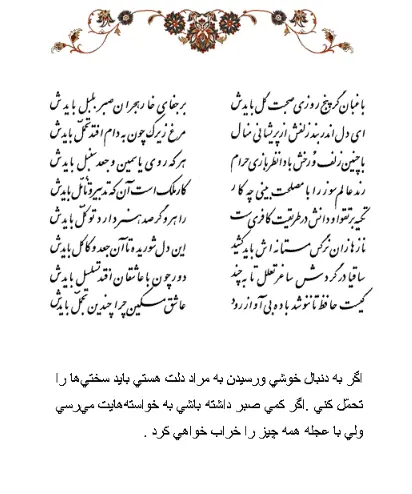 باغبان گر پنج روزی صحبت گل بایدش بر جفای خار هجران صبر بلبل بایدش
ای دل اندر بند زلفش از پریشانی منال مرغ زیرک چون به دام افتد تحمل بایدش
با چنین زلف و رخش بادا نظربازی حرام هر که روی یاسمین و جعد سنبل بایدش
رند عالم سوز را با مصلحت بینی چه کار کار ملک است آن که تدبیر و تأمل بایدش
تکیه بر تقوا و دانش در طریقت کافری ست راهرو گر صد هنر دارد توکل بایدش
نازها زان نرگس مستانه اش باید کشید این دل شوریده تا آن جعد و کاکل بایدش
ساقیا در گردش ساغر تعلل تا به چند دور چون با عاشقان افتد تسلسل بایدش
کیست حافظ تا ننوشد باده بی آواز رود عاشق مسکین چرا چندین تجمل بایدش
اگر به دنبال خوشي ورسيدن به مراد دلت هستي بايد سختي‌ها را
تحمّل كني .اگر كمي صبر داشته باشي به خواسته‌هايت مي‌رسي
ولي با عجله همه چيز را خراب خواهي كرد .